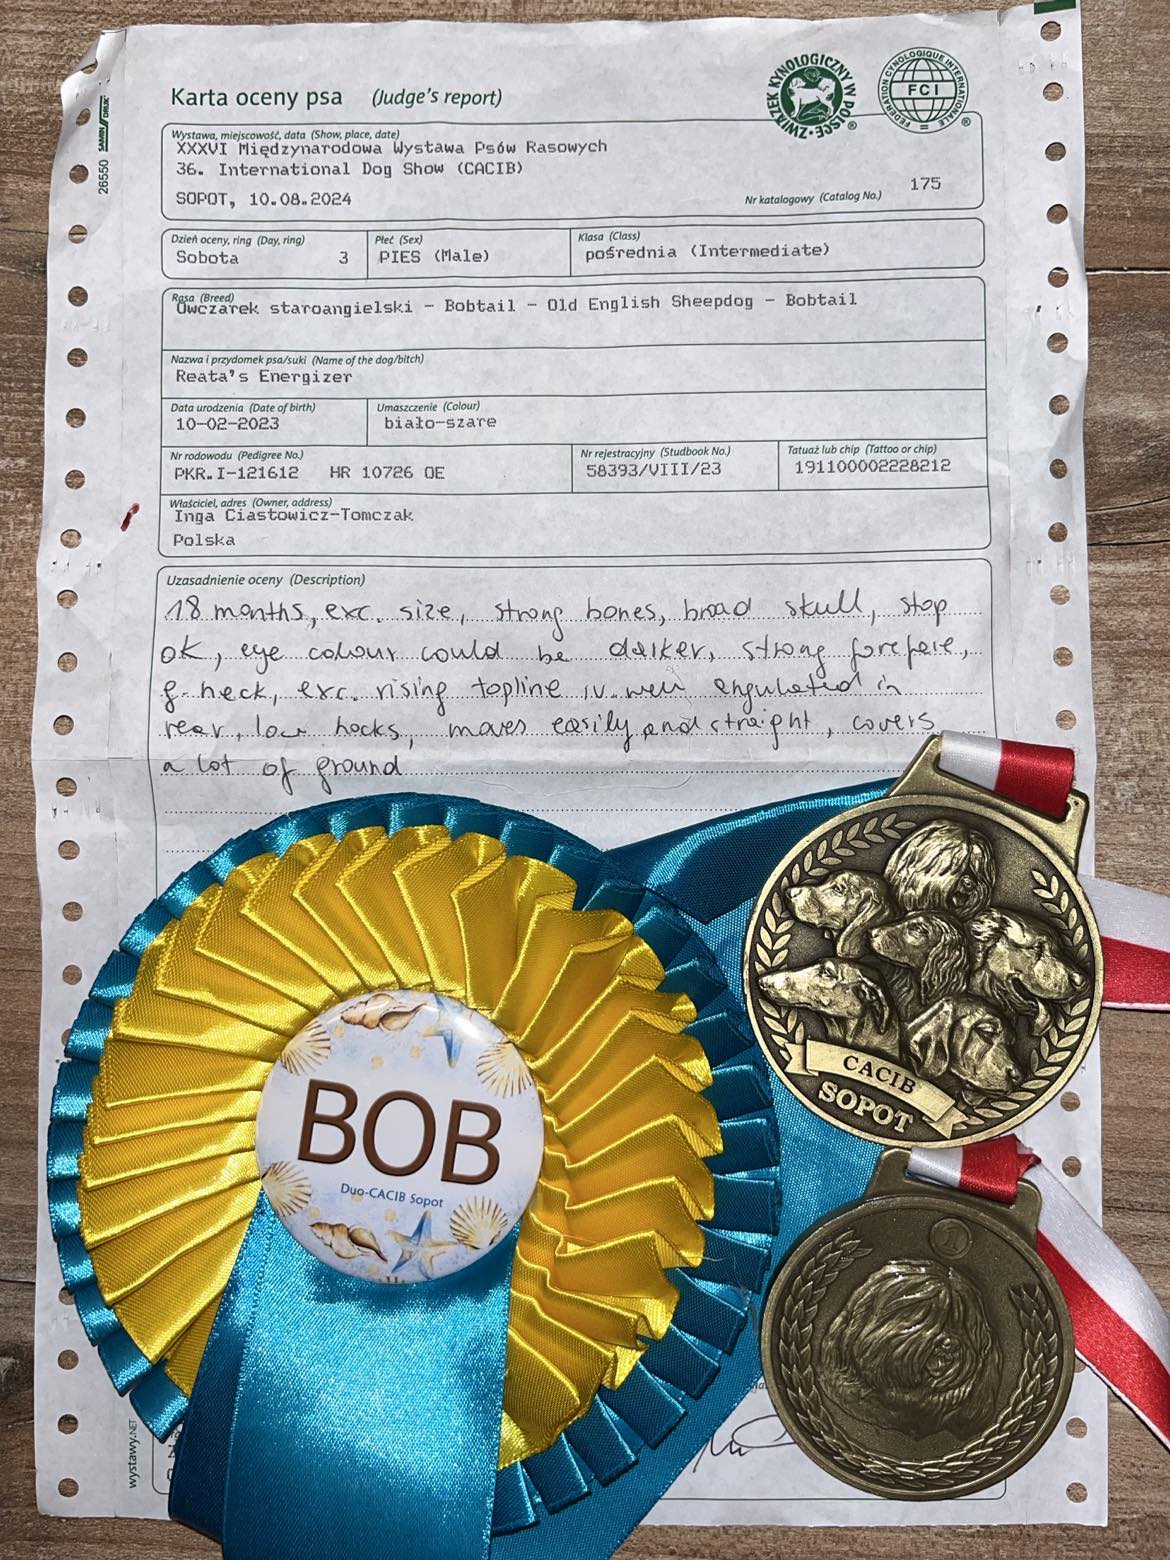 SAMIN / DRUK
26550
Karta oceny psa (Judge's report)
ZWIĄZEK KYNOLOGICZNY W POLSCE
®
FEDERATION CYNOLOGIQUE INTERNATIONALE
FCI
®
Wystawa, miejscowość, data (Show, place, date)
XXXVI Międzynarodowa Wystawa Psów Rasowych
36. International Dog Show (CACIB)
SOPOT, 10.08.2024
Nr katalogowy (Catalog No.) 175
Dzień oceny, ring (Day, ring) Płeć (Sex) Klasa (Class)
Sobota 3 PIES (Male) pośrednia (Intermediate)
Rasa (Breed)
Owczarek staroangielski - Bobtail - Old English Sheepdog - Bobtail
Nazwa i przydomek psa/suki (Name of the dog/bitch)
Reata's Energizer
Data urodzenia (Date of birth) Umaszczenie (Colour)
10-02-2023 biało-szare
Nr rodowodu (Pedigree No.) Nr rejestracyjny (Studbook No.) Tatuaż lub chip (Tattoo or chip)
PKR.I-121612 HR 10726 OE 58393/VIII/23 191100002228212
Właściciel, adres (Owner, address)
Inga Ciastowicz-Tomczak
Polska
Uzasadnienie oceny (Description)
18 months, exc. size, strong bones, broad skull, stop
ok, eye colour could be darker, strong foreface,
g. neck, exc. rising topline, v. well angulated in
rear, low hocks, moves easily and straight, covers
a lot of ground
BOB
Duo-CACIB Sopot
CACIB
SOPOT
1
wystawy.NET